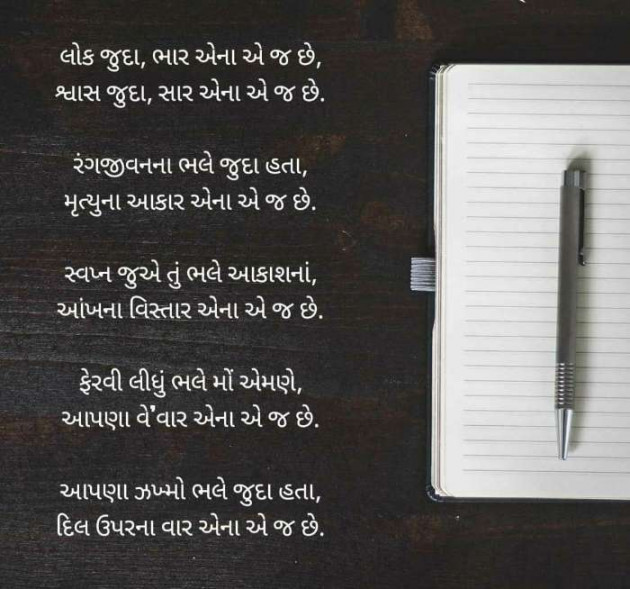 લોક જુદા, ભાર એના એ જ છે,
શ્વાસ જુદા, સાર એના એ જ છે.
રંગજીવનના ભલે જુદા હતા,
મૃત્યુના આકાર એના એ જ છે.
સ્વપ્ન જુએ તું ભલે આકાશનાં,
આંખના વિસ્તાર એના એ જ છે.
ફેરવી લીધું ભલે મોં એમણે,
આપણા વે'વાર એના એ જ છે.
આપણા ઝખ્મો ભલે જુદા હતા,
દિલ ઉપરના વાર એના એ જ છે.